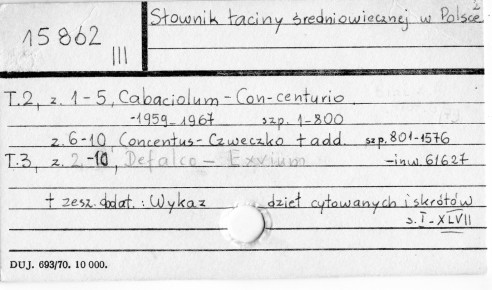 2
15 862
III
Słownik łaciny średniowiecznej w Polsce
T.2, z. 1-5, Cabaciolum - Con-centurio
-1959-1967 szp. 1-800
z. 6-10, Concentus - Czweczko + add. szp. 801-1576
T.3, z. 2-10, Defalco - Exvium -inw. 61627
+ zesz. dodat. : Wykaz dzieł cytowanych i skrótów
s. I-XLVII
DUJ. 693/70. 10 000.